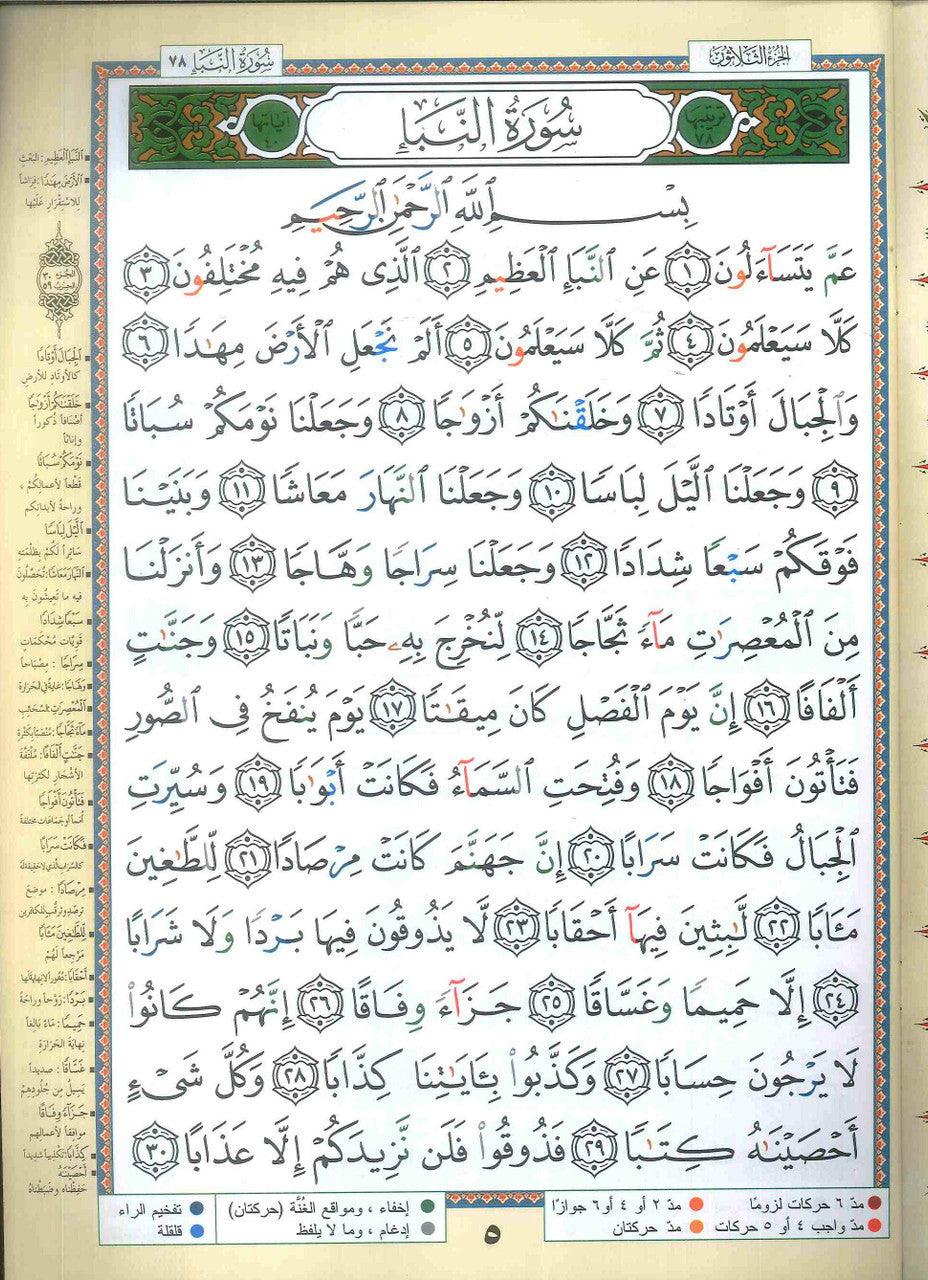 سُورَةُ النَّبَإِ ٧٨
الجزء الثلاثون
ترتيبها ٧٨
سُورَةُ النَّبَإِ
آياتها ٤٠
بِسْمِ ٱللَّهِ ٱلرَّحْمَٰنِ ٱلرَّحِيمِ
عَمَّ يَتَسَآءَلُونَ ١ عَنِ ٱلنَّبَإِ ٱلْعَظِيمِ ٢ ٱلَّذِى هُمْ فِيهِ مُخْتَلِفُونَ ٣
كَلَّا سَيَعْلَمُونَ ٤ ثُمَّ كَلَّا سَيَعْلَمُونَ ٥ أَلَمْ نَجْعَلِ ٱلْأَرْضَ مِهَٰدًا ٦
وَٱلْجِبَالَ أَوْتَادًا ٧ وَخَلَقْنَٰكُمْ أَزْوَٰجًا ٨ وَجَعَلْنَا نَوْمَكُمْ سُبَاتًا
٩ وَجَعَلْنَا ٱلَّيْلَ لِبَاسًا ١٠ وَجَعَلْنَا ٱلنَّهَارَ مَعَاشًا ١١ وَبَنَيْنَا
فَوْقَكُمْ سَبْعًا شِدَادًا ١٢ وَجَعَلْنَا سِرَاجًا وَهَّاجًا ١٣ وَأَنزَلْنَا
مِنَ ٱلْمُعْصِرَٰتِ مَآءً ثَجَّاجًا ١٤ لِّنُخْرِجَ بِهِۦ حَبًّا وَنَبَاتًا ١٥ وَجَنَّٰتٍ
أَلْفَافًا ١٦ إِنَّ يَوْمَ ٱلْفَصْلِ كَانَ مِيقَٰتًا ١٧ يَوْمَ يُنفَخُ فِى ٱلصُّورِ
فَتَأْتُونَ أَفْوَاجًا ١٨ وَفُتِحَتِ ٱلسَّمَآءُ فَكَانَتْ أَبْوَٰبًا ١٩ وَسُيِّرَتِ
ٱلْجِبَالُ فَكَانَتْ سَرَابًا ٢٠ إِنَّ جَهَنَّمَ كَانَتْ مِرْصَادًا ٢١ لِّلطَّٰغِينَ
مَـَٔابًا ٢٢ لَّٰبِثِينَ فِيهَآ أَحْقَابًا ٢٣ لَّا يَذُوقُونَ فِيهَا بَرْدًا وَلَا شَرَابًا
٢٤ إِلَّا حَمِيمًا وَغَسَّاقًا ٢٥ جَزَآءً وِفَاقًا ٢٦ إِنَّهُمْ كَانُوا۟
لَا يَرْجُونَ حِسَابًا ٢٧ وَكَذَّبُوا۟ بِـَٔايَٰتِنَا كِذَّابًا ٢٨ وَكُلَّ شَىْءٍ
أَحْصَيْنَٰهُ كِتَٰبًا ٢٩ فَذُوقُوا۟ فَلَن نَّزِيدَكُمْ إِلَّا عَذَابًا ٣٠
النَّبَإِ العَظِيمِ : البَعْث
الأَرْضَ مِهَٰدًا : فِرَاشاً
لِلاستِقْرَارِ عَلَيْهَا
الجزء ٣٠
الحزب ٥٩
الجِبَالَ أَوْتَادًا
كالأوتادِ للأرضِ
خَلَقْنَٰكُمْ أَزْوَٰجًا
أصْنَافاً ذُكوراً
وإنَاثاً
نَوْمَكُمْ سُبَاتًا
قَطْعاً لأعمالِكُمْ ،
وراحةً لأبدَانِكم
الَّيْلَ لِبَاسًا
سَاتراً لَكُمْ بظُلْمَتِهِ
النَّهَارَ مَعَاشًا : تُحَصِّلُونَ
فيه ما تَعِيشُونَ بِه
سَبْعًا شِدَادًا
قَوِيَّاتٍ مُحْكَمَاتٍ
سِرَاجًا : مِصْبَاحاً
وَهَّاجًا : غايةً في الحَرَارة
المُعْصِرَٰتِ : السَّحَائِب
مَآءً ثَجَّاجًا : مُنْصَبّاً بكَثْرَة
جَنَّٰتٍ أَلْفَافًا : مُلْتَفَّةَ
الأشْجَارِ لكَثْرَتِها
فَتَأْتُونَ أَفْوَاجًا
أُمَماً أو جَمَاعَاتٍ مختلفة
فَكَانَتْ سَرَابًا
كالسَّرَابِ الذي لا حَقِيقَةَ له
مِرْصَادًا : موضع
تَرَصُّدٍ وترَقُّبٍ للكافِرين
لِلطَّٰغِينَ مَـَٔابًا
مَرْجِعاً لَهُمْ
أَحْقَابًا : دُهُوراً لا نِهايةَ لَها
بَرْدًا : رَوْحاً وراحَةً
حَمِيمًا : مَاءً بَالِغاً
نهايَةَ الحَرَارَة
غَسَّاقًا : صَدِيداً
يَسِيلُ مِنْ جُلُودِهِمْ
جَزَآءً وِفَاقًا
موافِقاً لأعمالِهم
كِذَّابًا : تَكْذِيباً شَدِيداً
أَحْصَيْنَٰهُ
حَفِظْنَاه وضَبَطْنَاهُ
مدّ ٦ حركات لزومًا
مدّ ٢ أو ٤ أو ٦ جوازًا
إخفاء ، ومواقع الغُنَّة (حركتان)
تفخيم الراء
مدّ واجب ٤ أو ٥ حركات
مدّ حركتان
إدغام ، وما لا يلفظ
قلقلة
٥